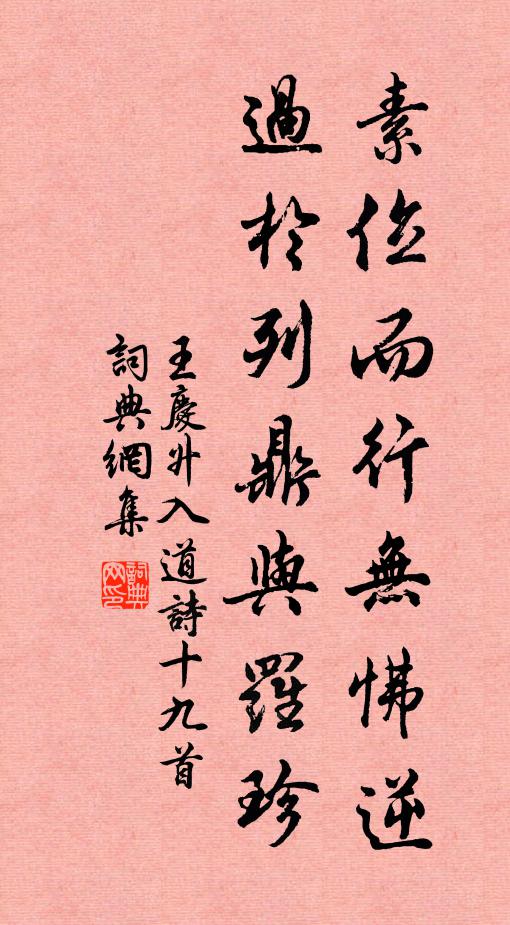 素位而行無怫逆
過於列鼎與羅珍
王慶升入道詩十九首
詞典網集
詞典
网印